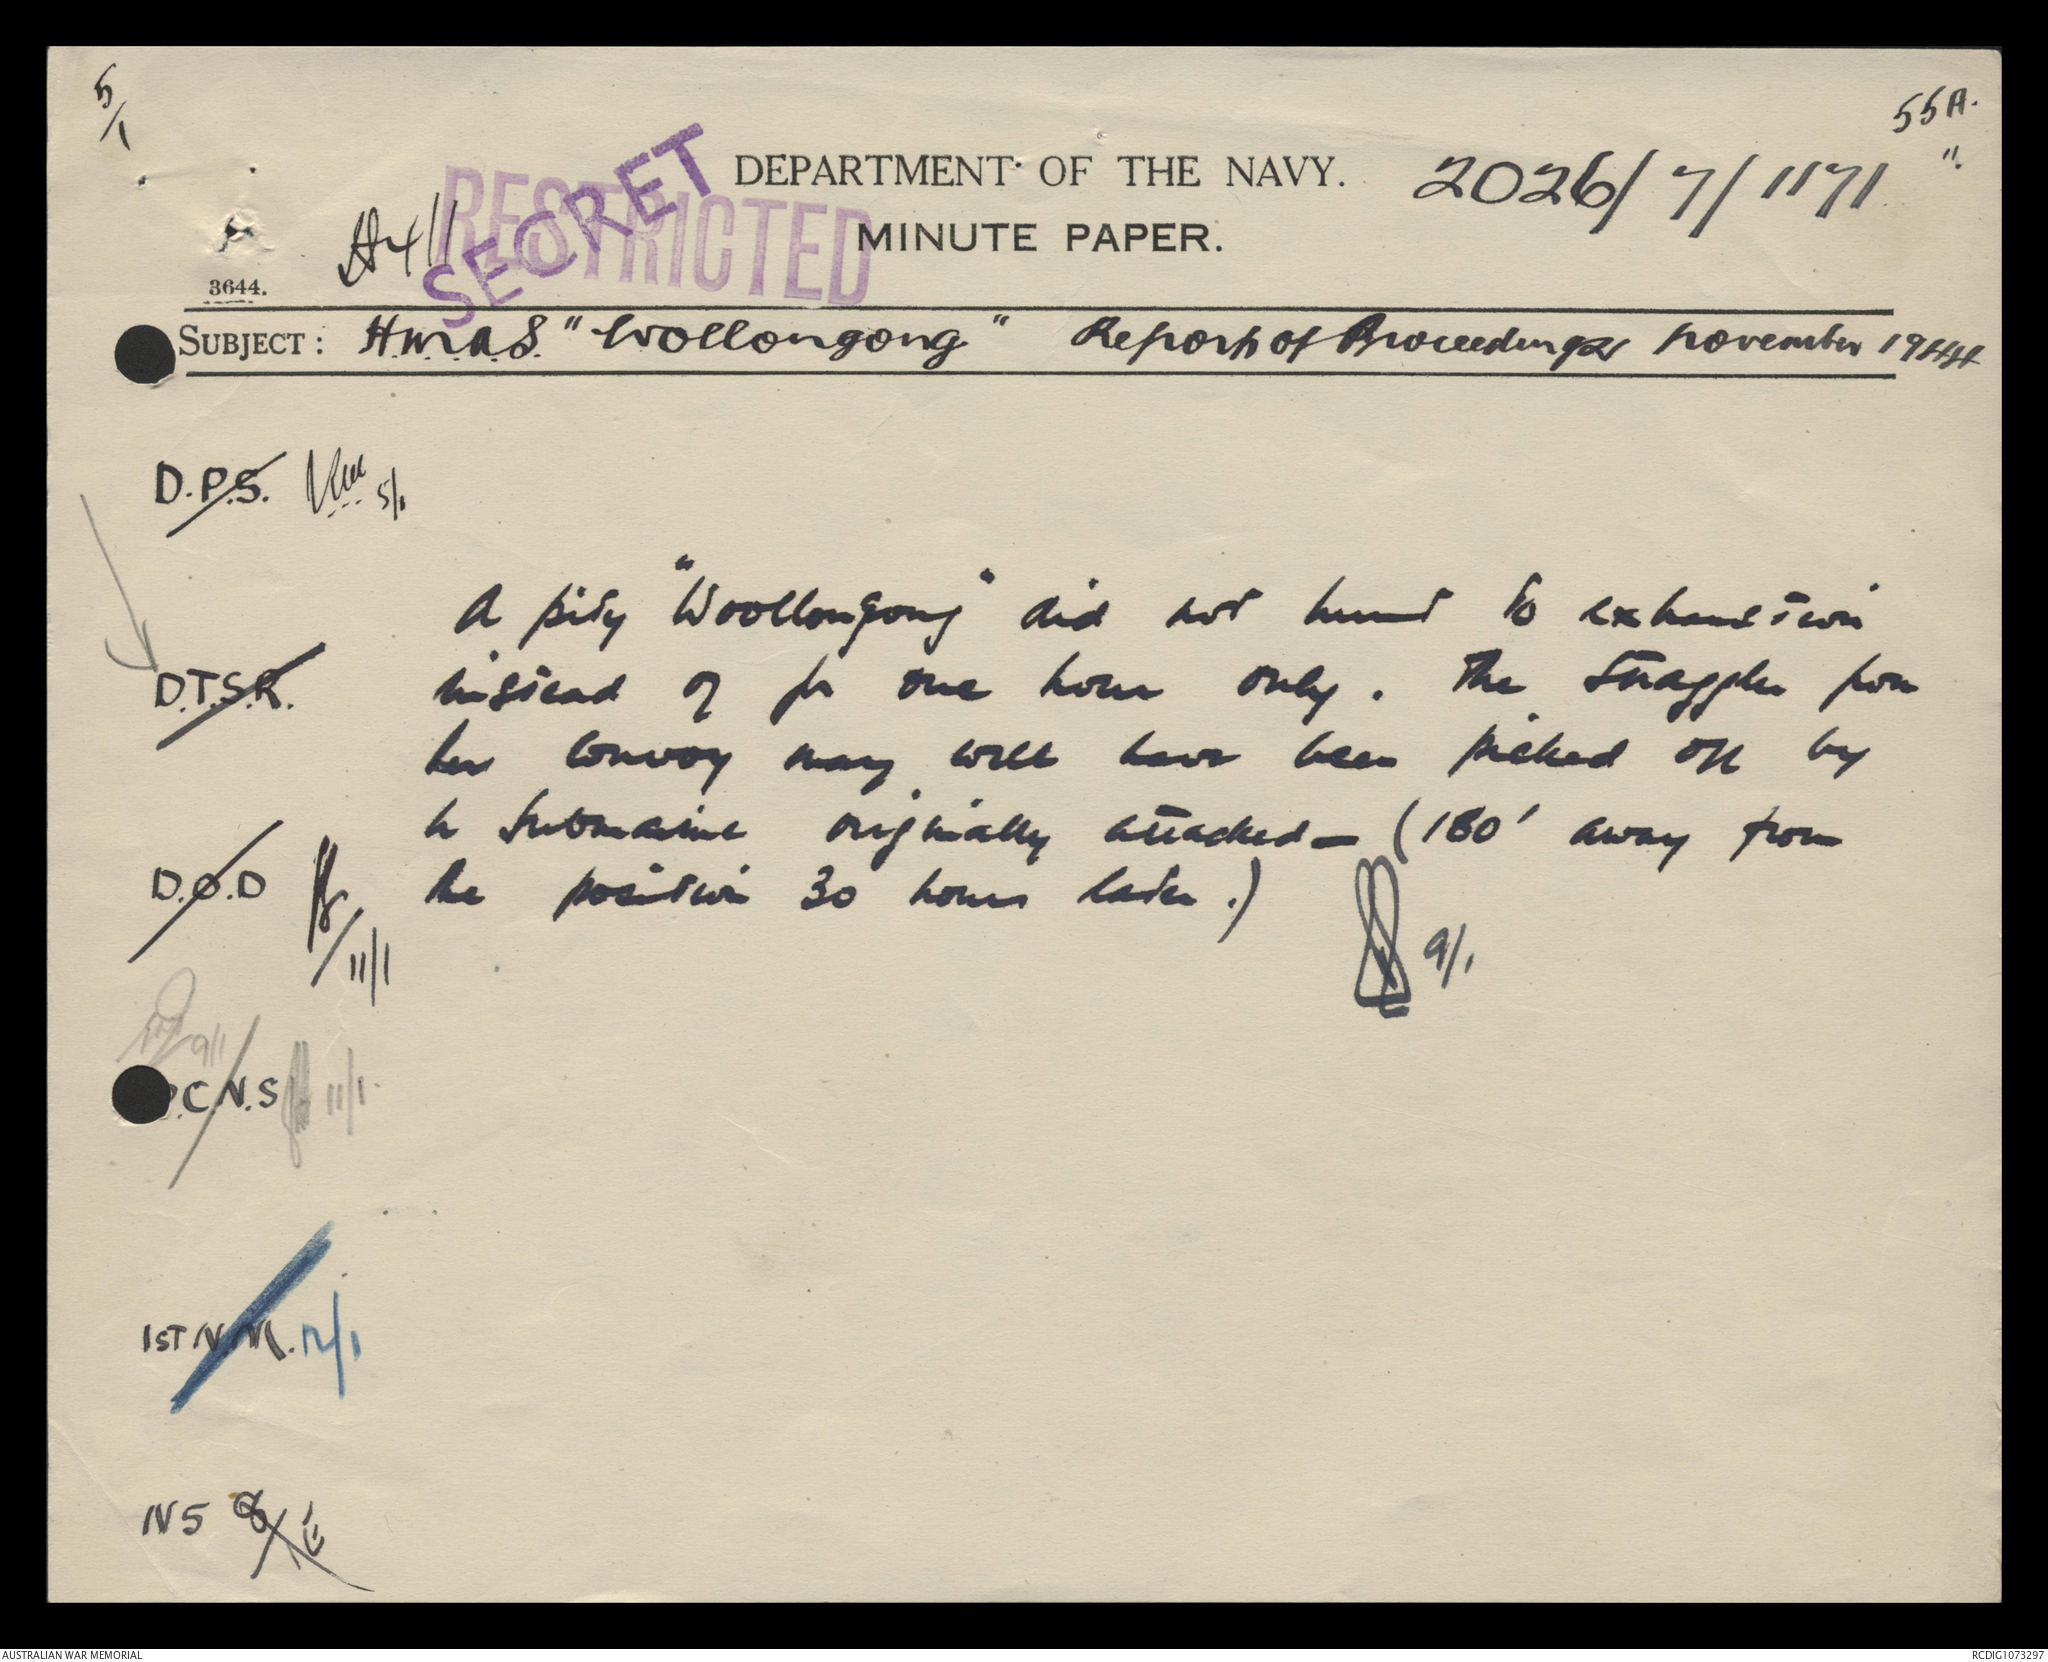 5/1
55A.
DEPARTMENT OF THE NAVY.
2026/7/1171
RESTRICTED
SECRET
MINUTE PAPER.
3644.
SUBJECT: H.M.A.S. "Wollongong" Report of Proceedings November 1944
D.P.S. 5/1
A pity "Woollongong" did not hunt to exhaustion
D.T.S.R.
instead of for one hour only. The straggler from
her convoy may well have been picked off by
submarine originally attacked - (180' away from
D.O.D
the position 30 hours later.)
11/1
9/1
9/1
.C.N.S 11/1
1ST N.M. 12/1
N5
AUSTRALIAN WAR MEMORIAL
RCDIG1073297